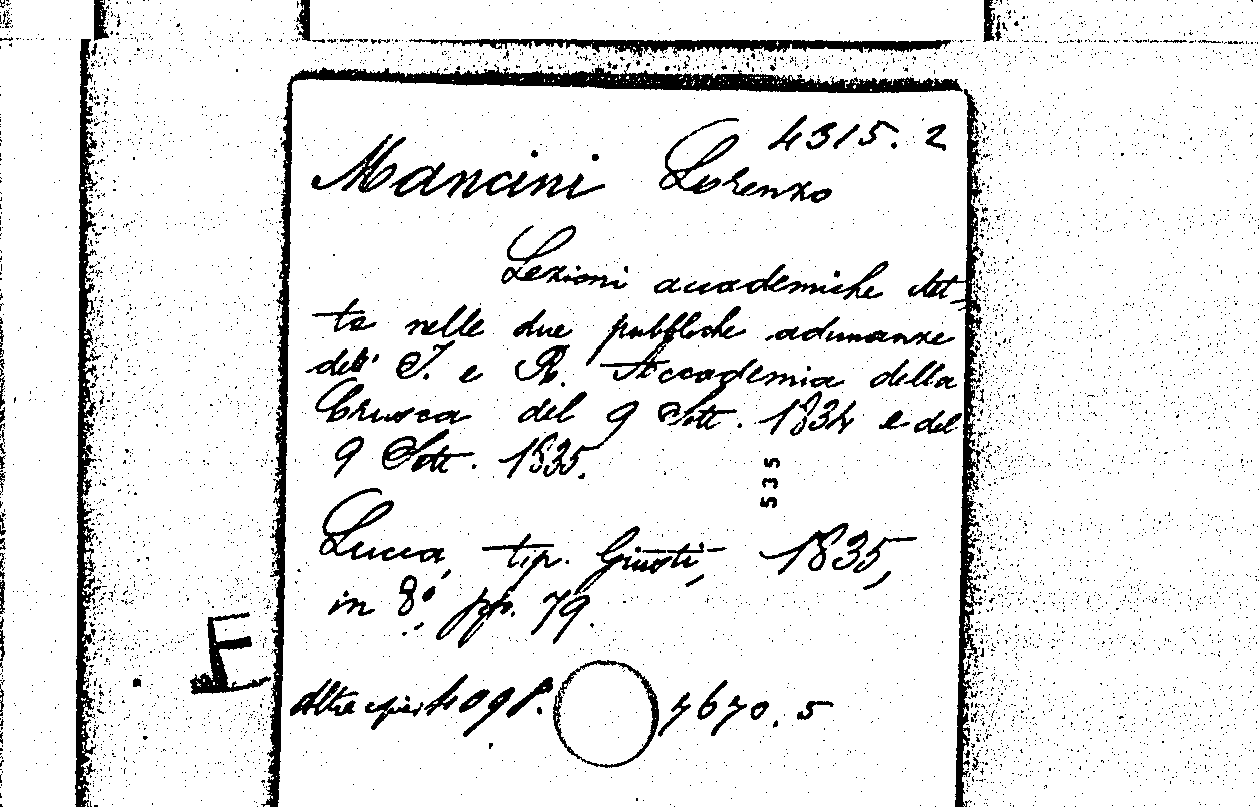 4315. 2
Mancini Lorenzo
Lezioni accademiche det-
te nelle due pubbliche adunanze
dell' I. e R. Accademia della
Crusca del 9 Sett. 1834 e del
9 Sett. 1835.
535
Lucca, tip. Giusti, 1835,
in 8°, pp. 79.
E
Altre copie: 4670. 5